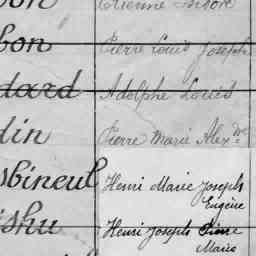 Etienne
bon Pierre Louis Joseph
dard Adolphe Louis
din Pierre Marie Alex.dre
sbineul Henri Marie Joseph
Eugène
ishu Henri Joseph Pierre
Marie